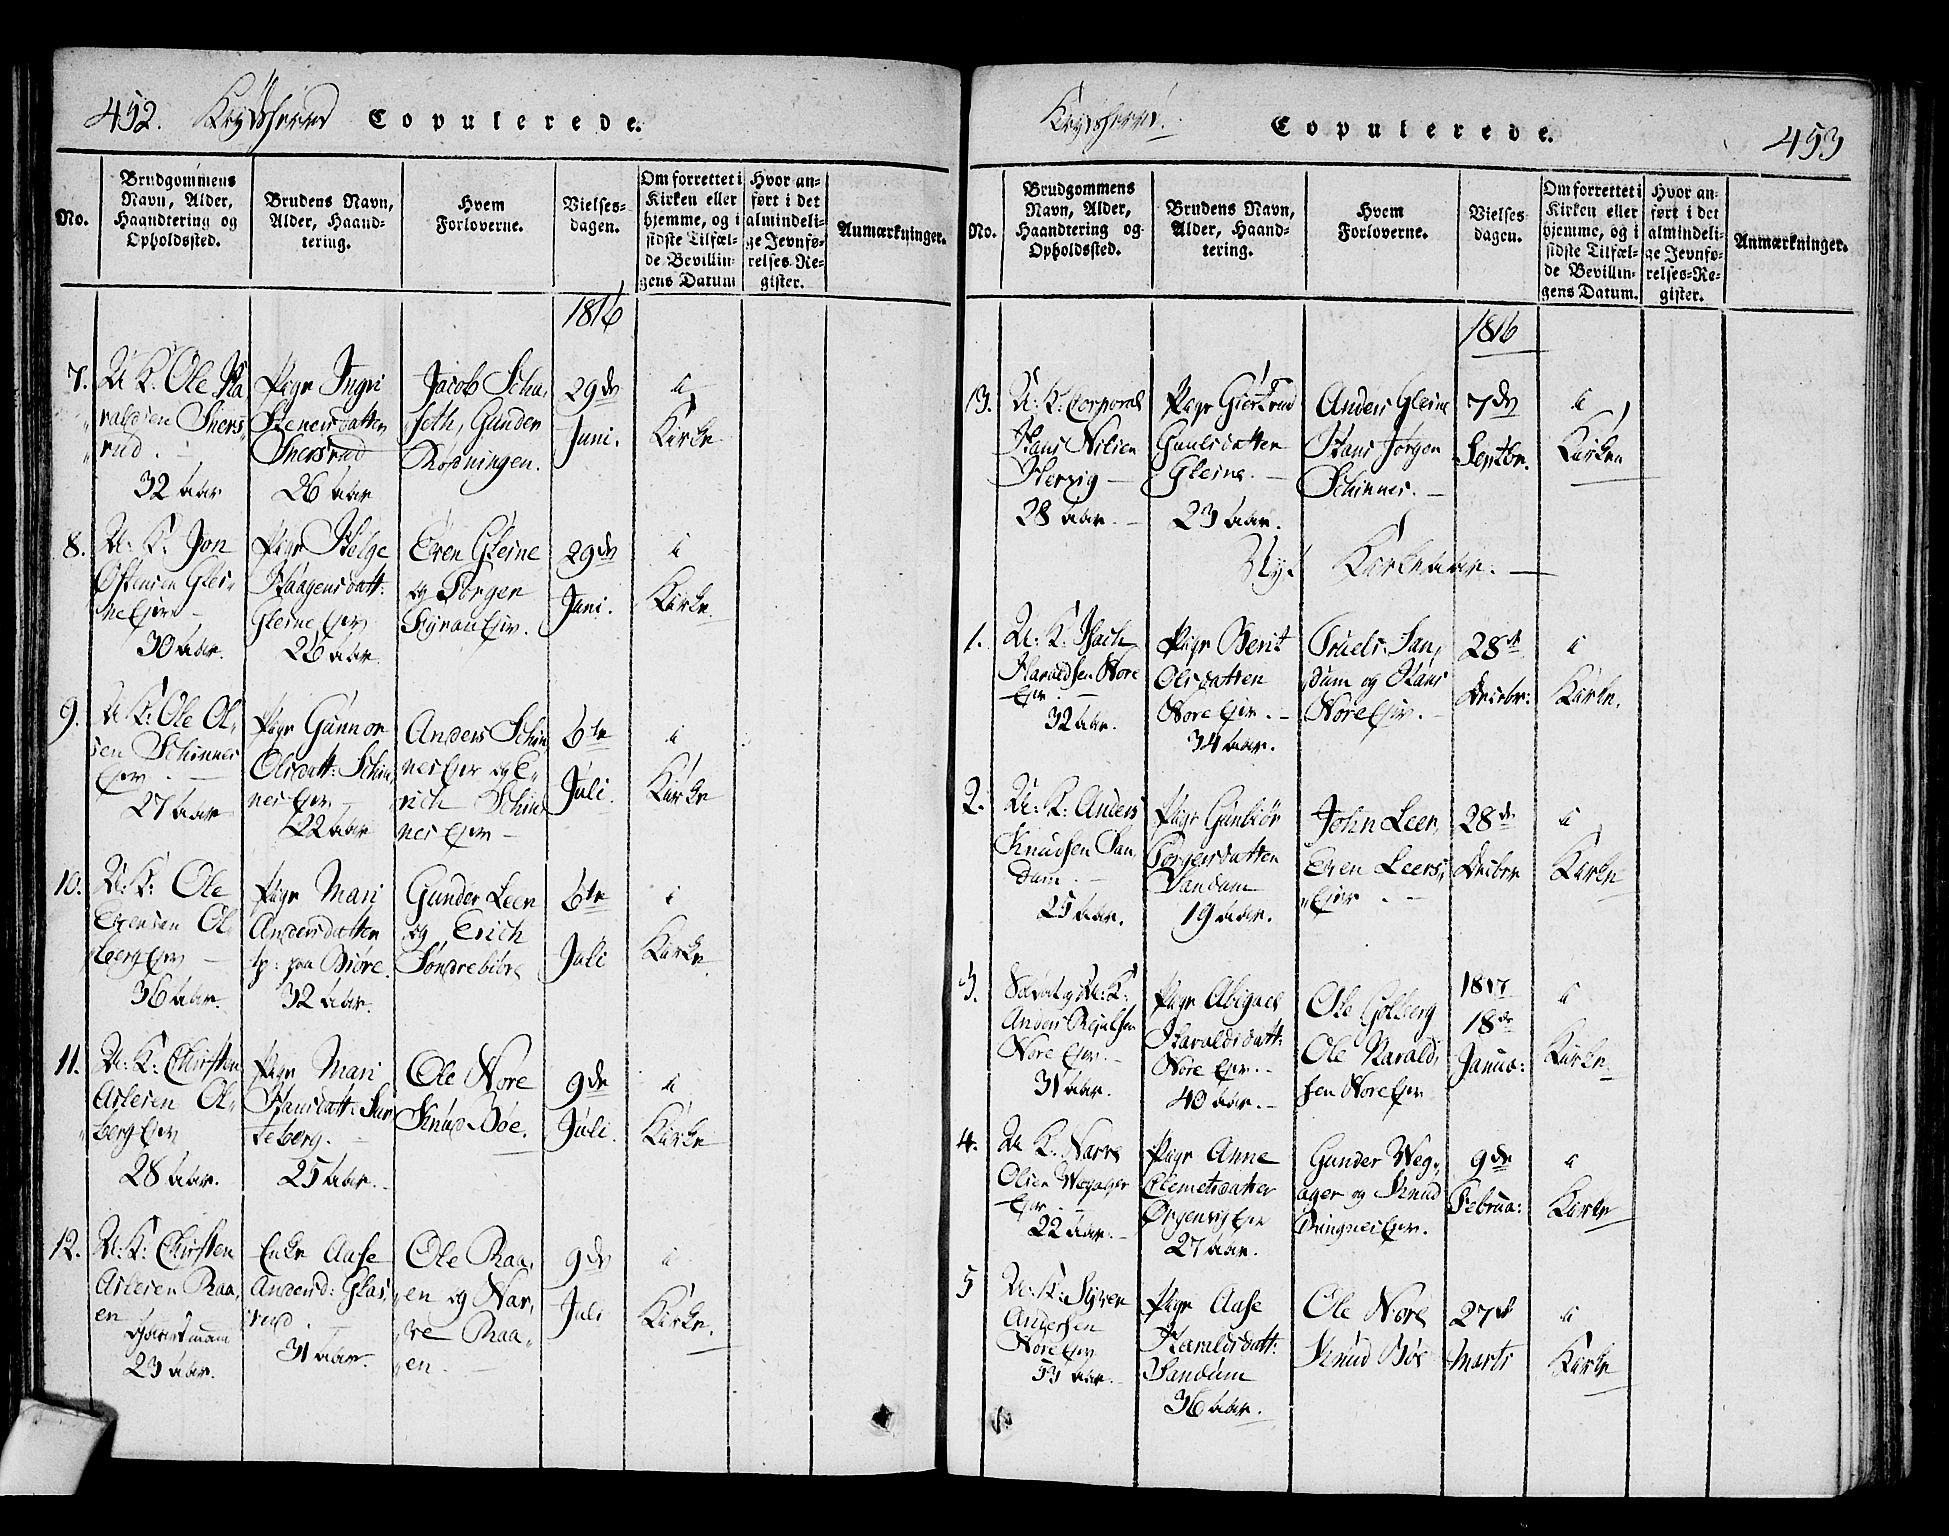 452. Krydsherred Copulerede.
No.
Brudgommens Navn, Alder, Haandtering og Opholdssted.
Brudens Navn, Alder, Haandtering.
Hvem Forloverne.
Vielses-dagen.
Om forrettet i Kirken eller hjemme, og i sidste Tilfælde Bevillingens Datum
Hvor anført i det almindelige Jevnførelses-Register.
Anmærkninger.
1816
7. U. K. Ole Ha
raldsen Sners
rud.
32 aar
Pige Ingri
Stenersdatter
Snersrud
26 aar
Jacob Scha
seth, Gunder
Rodningen.
29de
Juni.
i
Kirke
8. U. K: Jon
Ostensen Glei
ne Eier
30 aar.
Pige Helge
Haagensdatt:
Gleine Eier
26 aar
Even Gleine
og Torger
29de
Juni.
i
Kirke.
9. U K: Ole Ol
sen Schinnes
Eier
27 aar
Pige Gunnor
Olsdatt: Schin
nes Eier
22 aar
Anders Schin
nes Eier og E
rich Schin
nes Eier
6te
Juli.
i
Kirke
10. U: K: Ole
Evensen Ol
berg Eier
36 aar.
Pige Mari
Andersdatter
tp: paa Biøre.
32 aar.
Gunder Leer
og Erich
Søndrebiøre
6te
Juli
i
Kirke.
11. U: K: Christen
Aslesen Ol
berg Eier
28 aar.
Pige Mari
Hansdatt:
teberg.
25 aar.
Ole Nore
Knud Bøe.
9de
Juli.
i
Kirke
12. U: K: Christen
Aslesen Raa
en
23 aar.
Enke Aase
Andersd: Glas
rud.
31 aar.
Ole Raa
en og Nar
ve Raa
en.
9de
Juli
i
Kirke.
Krydsherred. Copulerede. 453
No.
Brudgommens Navn, Alder, Haandtering og Opholdssted.
Brudens Navn, Alder, Haandtering.
Hvem Forloverne.
Vielses dagen.
Om forrettet i Kirken eller hjemme, og i sidste Tilfælde Bevillingens Datum.
Hvor anført i det almindelige Jevnførelses-Register.
Anmærkninger.
1816
13. U: K: Corporal
Hans Nilsen
Herzig
28 aar.
Pige Giertrud
Gleine.
23 aar.
Anders Gleine
Hans Jørgen
Schinnes.
7de
Septbr.
i
Kirken
Nyt Kirkeaar.
1. U: K. Isach
Haraldsen Nore
Eier
32 aar.
Pige Berit
Olsdatter
Nore Eier.
34 aar.
Truels San
dum og Hans
Nore Eier.
28de
Decbr:
i
Kirke.
2. U: K: Anders
Knudsen San
dum.
25 aar.
Pige Gunbiør
Torgersdatter
Sandum
19 aar.
John Leer,
Even Leers
Eier
28de
Decbr
i
Kirke
3.
Nore Eier.
31 aar.
Pige Abigael
Haraldsdatt:
Nore Eier.
40 aar.
Ole Golberg
Ole Harald
sen Nore Eier
1817
18de
Janua:
i
Kirke.
4. U K: Narve
Olsen Wegager
Eier
22 aar.
Pige Anne
Clemetsdatter
Ørgenvig Eier
27 aar.
Gunder Weg
ager og Knud
Bringnes Eier.
9de
Februa:
i
Kirke
5 U: K: Syver
Andersen
Nore Eier
53 aar.
Pige Aase
Haraldsdatt:
Sandum
36 aar.
Ole Nore
Knud Bøe
27d
Marts
i
Kirke